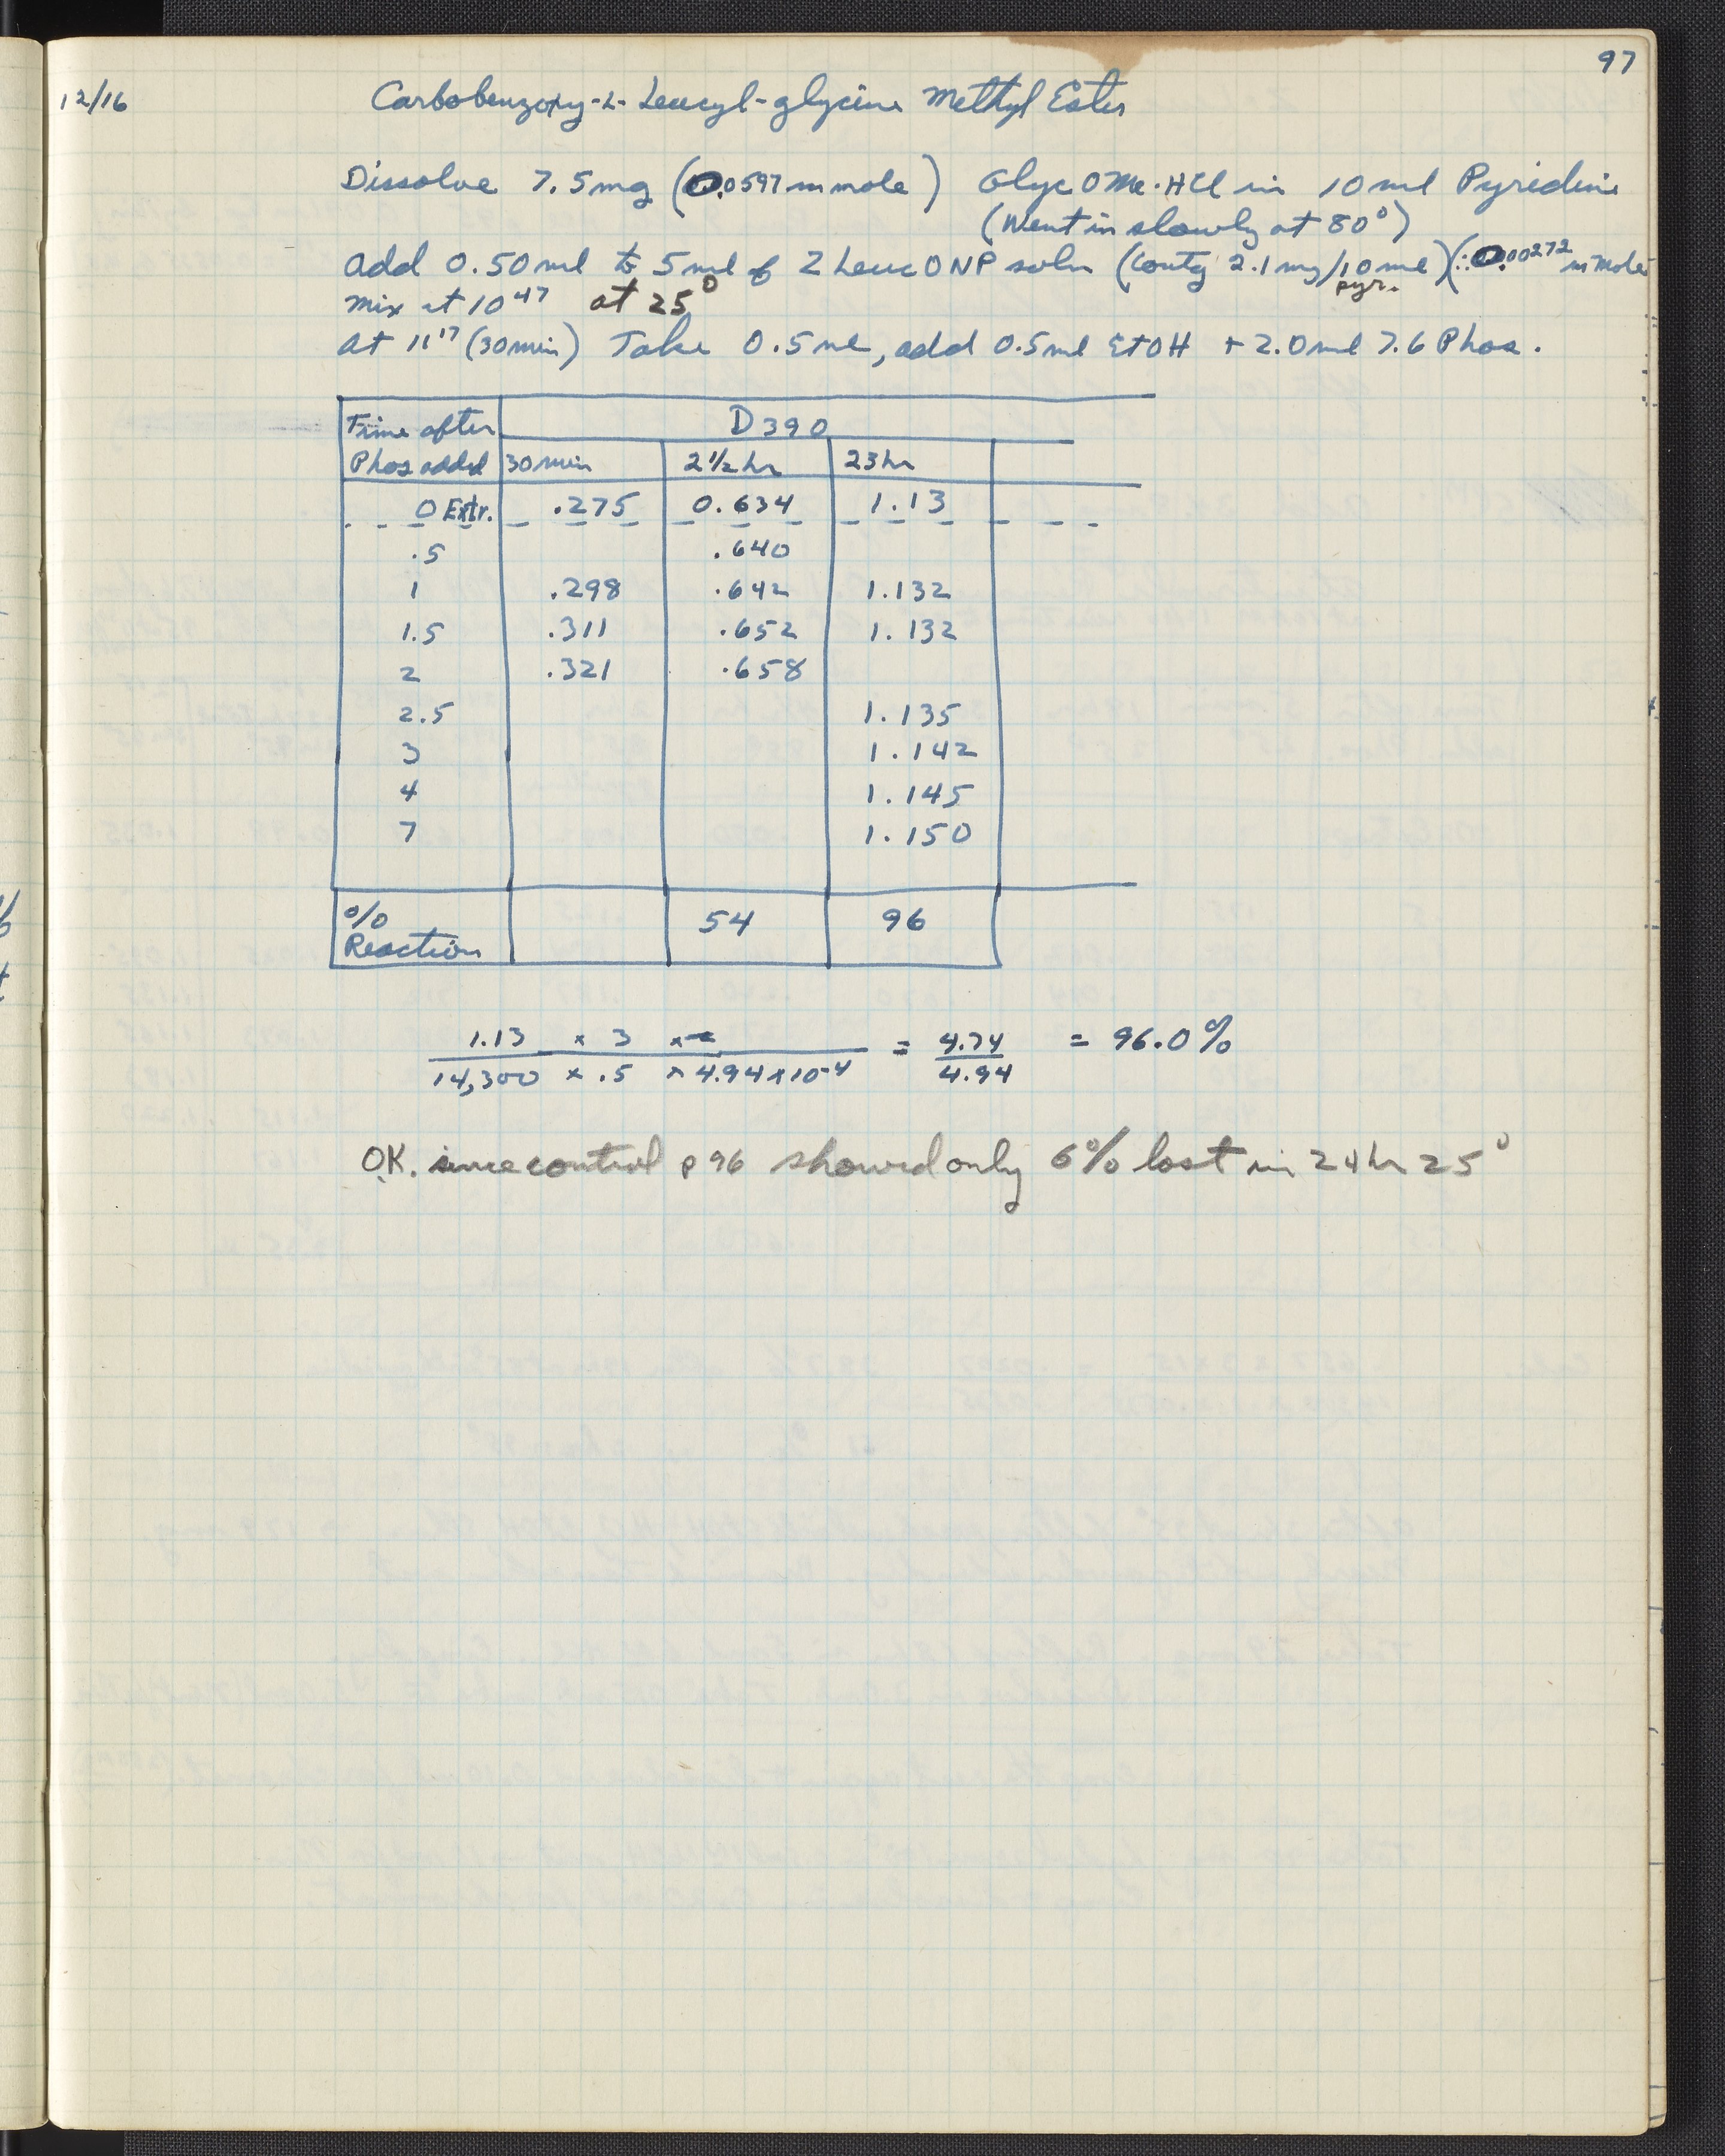 97
12/16 Carbobenzoxy-L-Leucyl-glycine Methyl Ester
Dissolve 7.5mg (0.0597 m mole) Glyc OMe·HCl in 10 ml Pyridine
(Went in slowly at 80°)
add 0.50ml to 5ml of Z Leuc ONP soln (contg 2.1 mg/10 ml pyr.) (∴ 0.00272 m Mole
Mix at 10 47 at 25°
at 11 17 (30 min) Take 0.5 ml, add 0.5 ml EtOH + 2.0 ml 7.6 Phos.
Time after D390
Phos added 30 min 2 1/2 hr 23 hr
0 Extr. .275 0.634 1.13
.5 .640
1 .298 .642 1.132
1.5 .311 .652 1.132
2 .321 .658
2.5 1.135
3 1.142
4 1.145
7 1.150
% 54 96
Reaction
1.13 × 3 × = 4.74 = 96.0%
14,300 × .5 × 4.94 × 10-4 4.94
O.K. since control p 96 showed only 6% lost in 24 hr 25°